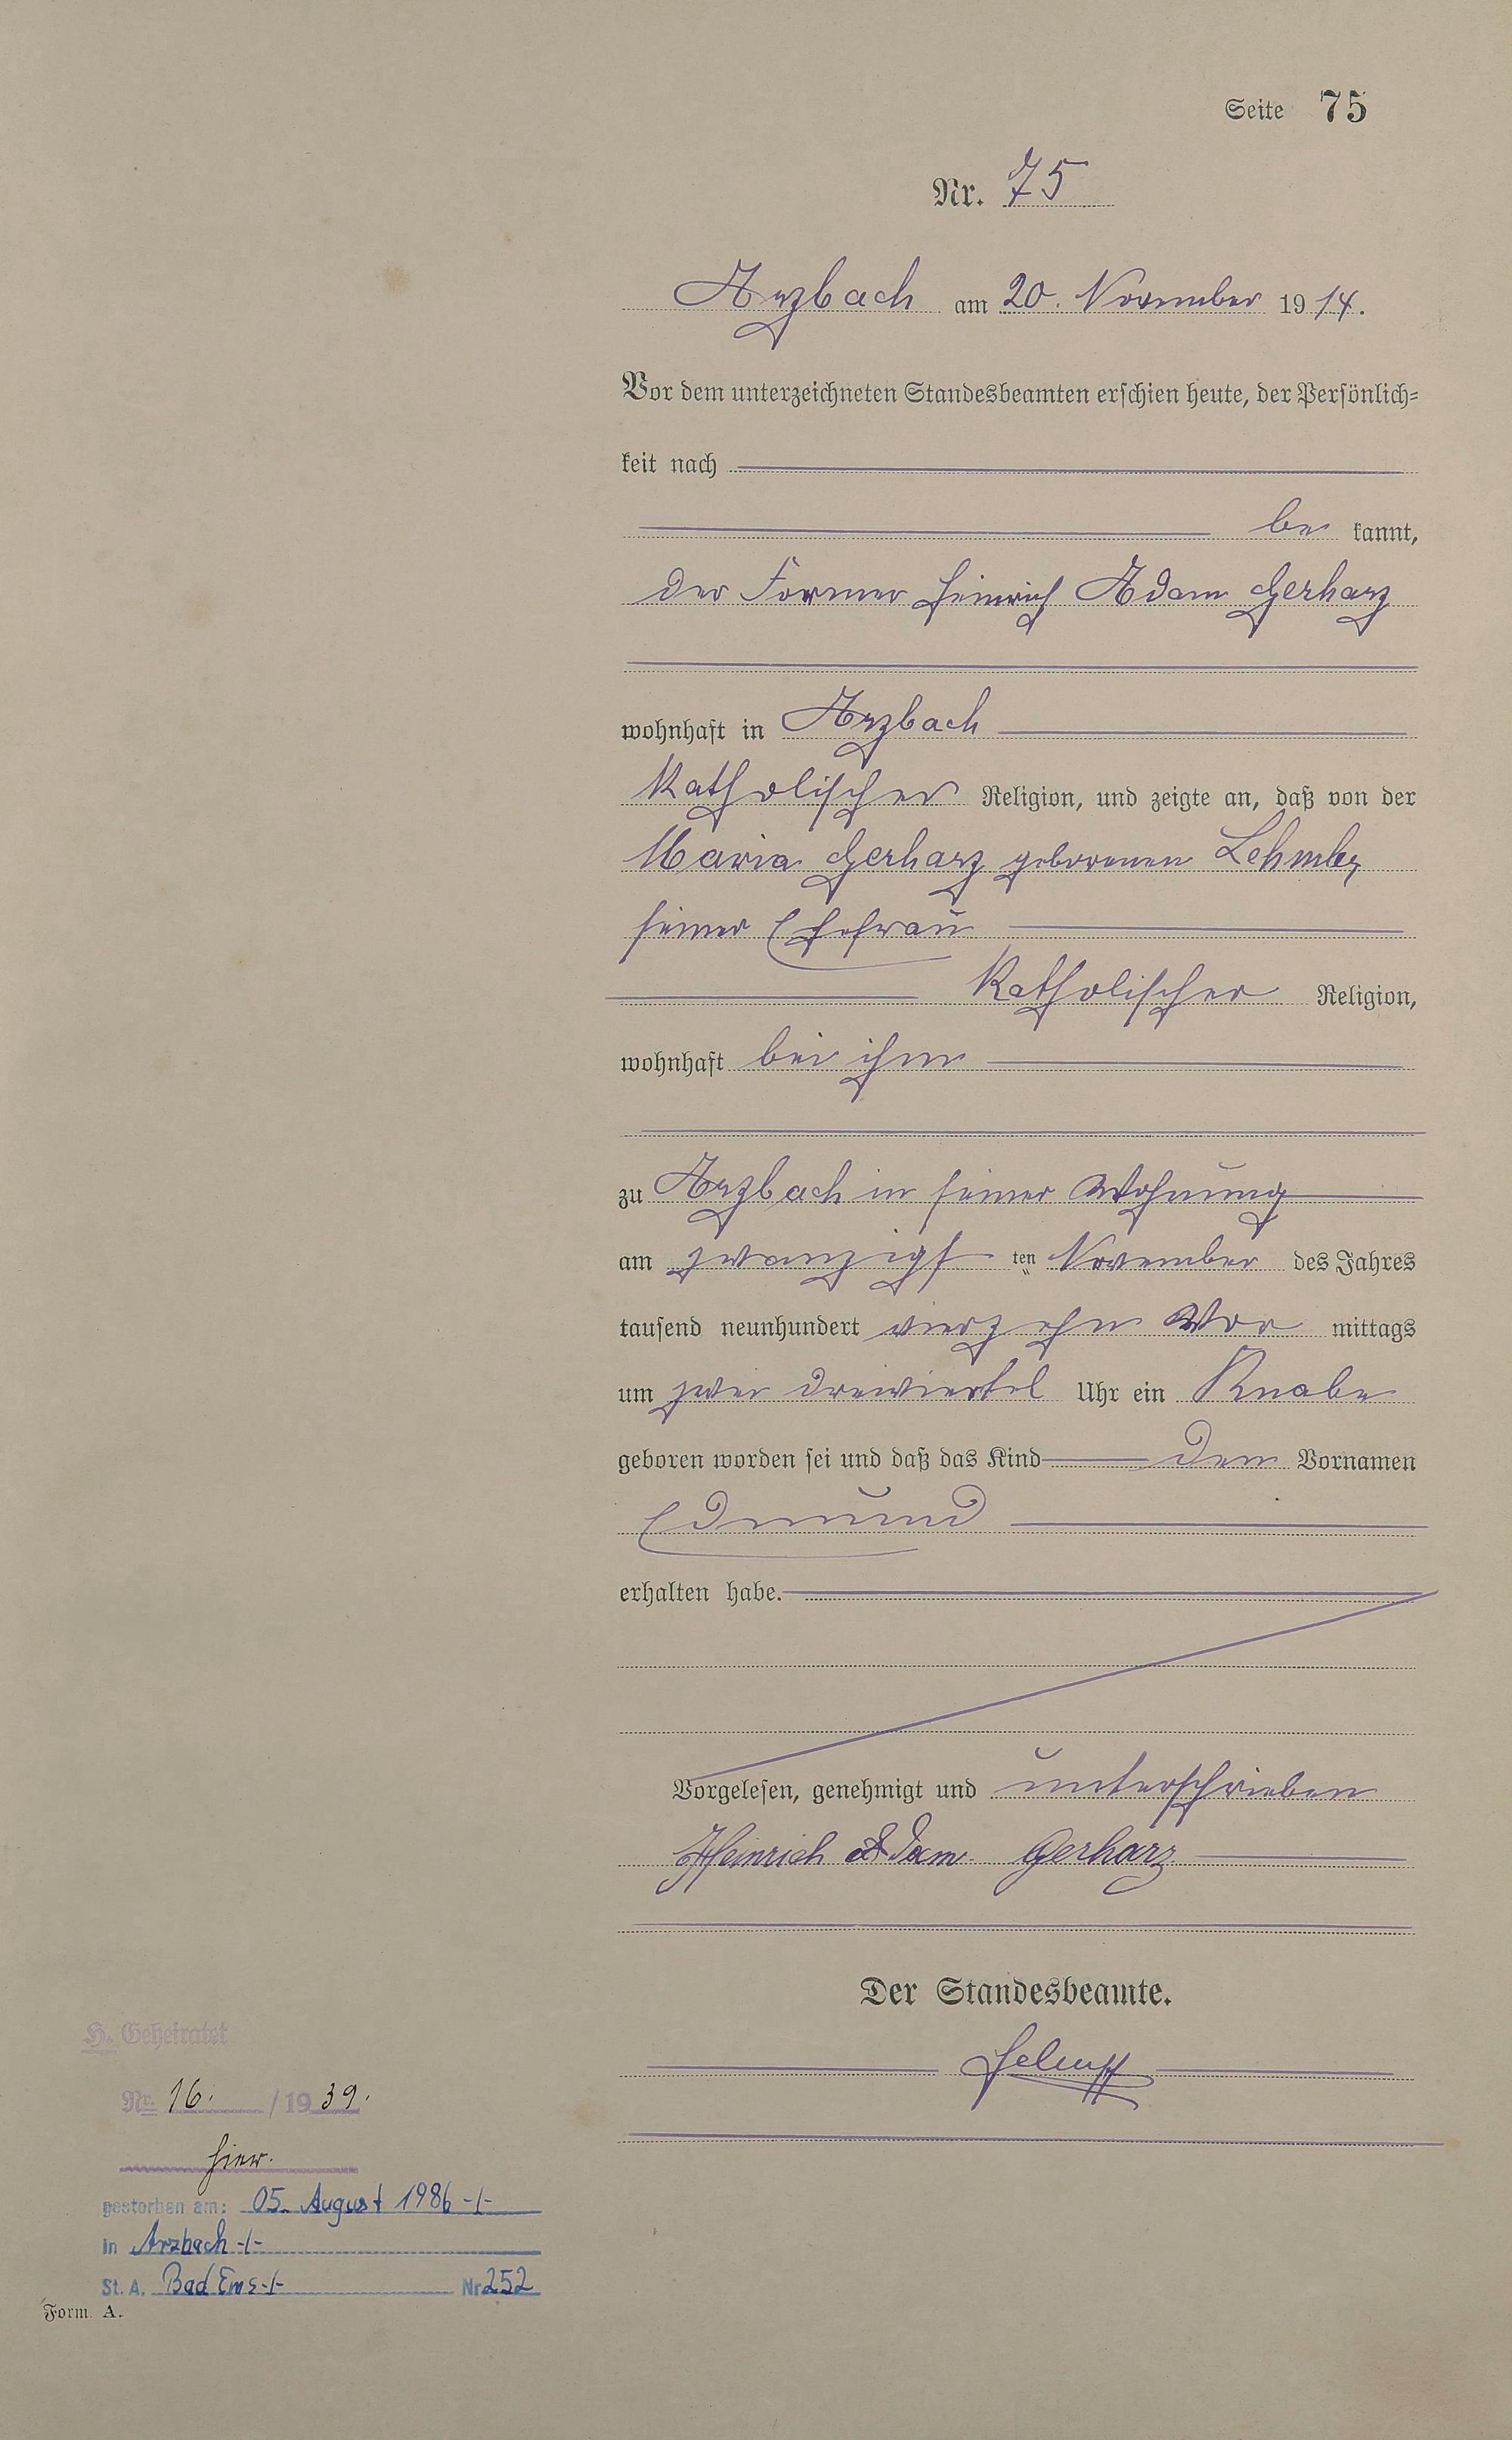 Seite 75
Nr. 75
Arzbach am 20. November 1914.
Vor dem unterzeichneten Standesbeamten erschien heute, der Persönlich=
keit nach
be kannt,
der Former Heinrich Adam Gerharz
wohnhaft in Arzbach
katholischer Religion, und zeigte an, daß von der
Maria Gerharz geborenen
seiner Ehefrau
katholischer Religion,
wohnhaft bei ihm
zu Arzbach in seiner Wohnung
am zwanzigs ten November des Jahres
tausend neunhundert vierzehn Vor mittags
um zwei dreiviertel Uhr ein Knabe
geboren worden sei und daß das Kind den Vornamen
Edmund
erhalten habe.
Vorgelesen, genehmigt und unterschrieben
Heinrich Adam Gerharz
Der Standesbeamte.
H. Geheiratet
Nr. 16. /1939.
hier.
gestorben am: 05. August 1986 -/-
in Arzbach -/-
St. A. Bad Ems -/- Nr 252
Form. A.